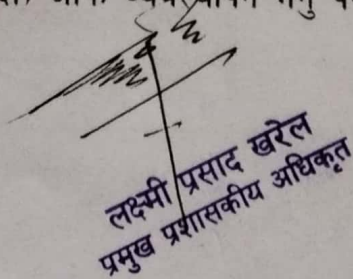 लक्ष्मी प्रसाद खरेल
प्रमुख प्रशासकीय अधिकृत